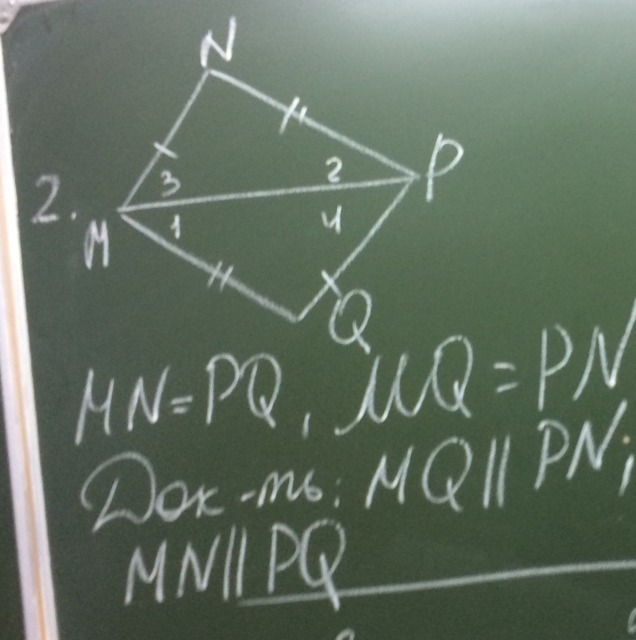 N
3 2 P
2.
M 1 4
Q
MN=PQ, MQ=PN
Док-ть: MQ || PN;
MN || PQ